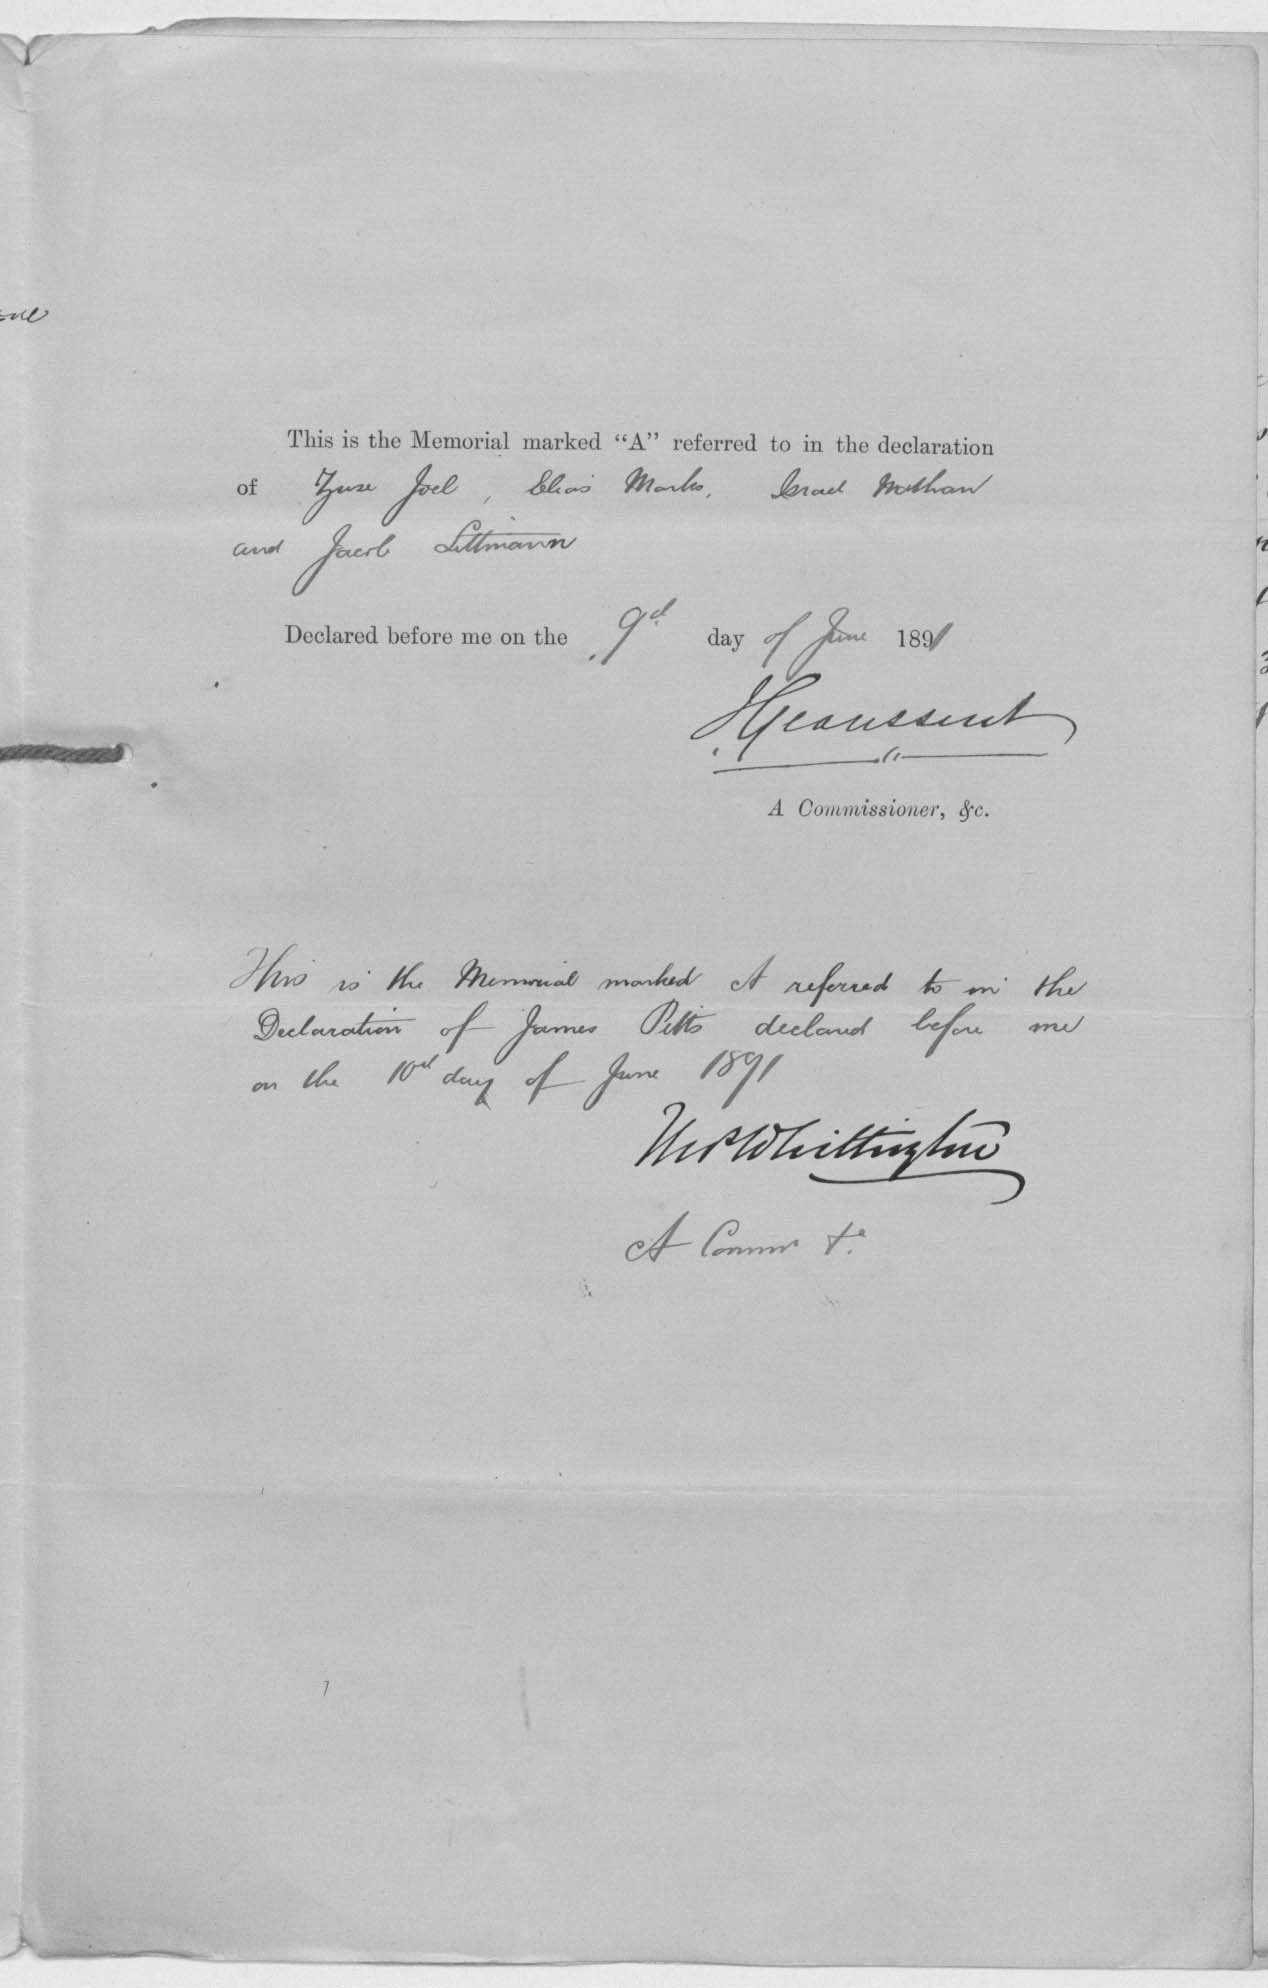 This is the Memorial marked "A" referred to in the declaration
of Zuse Joel, Elias Marks, Israel Nathan
and Jacob Littmann
Declared before me on the 9d day of June 1891
A Commissioner, &c.
This is the Memorial marked A referred to in the
Declaration of James Pitts declared before me
on the 10d day of June 1891
Whittington
A Commr &c.